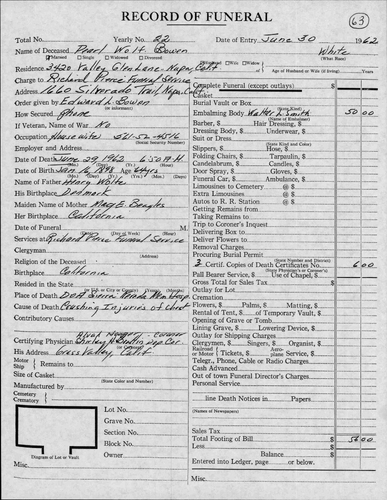 RECORD OF FUNERAL
63
Total No. Yearly No. 22 Date of Entry June 30 1962
Name of Deceased Pearl Wolf Bowen White
Married Single Widowed Divorced (What Race)
Residence 3420 Valley Glen Lane, Napa, Calif
Husband Wife Widow Age of Husband or Wife (if living) Years
Charge to Richard Pierce Funeral Service
Address 1660 Silverado Trail, Napa, Calif.
Order given by Edward L. Bowen
How Secured Phone
If Veteran, Name of War No
Occupation Housewife 521-52-4516
(Social Security Number)
Employer and Address
Date of Death June 29, 1962
Date of Birth Jan 16 1898 Age 64 yrs
Name of Father Henry Wolfe
His Birthplace Denmark
Maiden Name of Mother Mary E.
Her Birthplace California
Date of Funeral M
Services at Richard Pierce Funeral Service
Clergyman
(Address)
Religion of the Deceased
Birthplace California
Resided in the State
(in U.S. or City or County)
Place of Death DOA Sierra Nevada Mem Hosp.
Cause of Death Crushing Injuries of Chest
Contributory Causes
Certifying Physician
His Address Grass Valley, Calif
Motor Ship Remains to
Size of Casket
(State Color and Number)
Manufactured by
Cemetery
Crematory
Lot No.
Grave No.
Section No.
Block No.
Owner
Diagram of Lot or Vault
Misc.
Complete Funeral (except outlays) $
Casket
Burial Vault or Box
(State Kind)
Embalming Body Walter L. Smith 50 00
Barber, $ Hair Dressing, $
Dressing Body, $ Underwear, $
Suit or Dress
(State Kind and Color)
Slippers, $ Hose, $
Folding Chairs, $ Tarpaulin, $
Candelabrum, $ Candles, $
Door Spray, $ Gloves, $
Funeral Car, $ Ambulance, $
Limousines to Cemetery @ $
Extra Limousines @ $
Autos to R. R. Station @ $
Getting Remains from
Taking Remains to
Trip to Coroner's Inquest
Delivering Box to
Deliver Flowers to
Removal Charges
Procuring Burial Permit
(State Number and District)
3 Certif. Copies of Death Certificates No. 6 00
(State Physician's or Coroner's)
Pall Bearer Service, $ Use of Chapel, $
Gross Total for Sales Tax $
Outlay for Lot
Cremation
Flowers, $ Palms, $ Matting, $
Rental of Tent, $ of Temporary Vault, $
Opening of Grave or Tomb
Lining Grave, $ Lowering Device, $
Outlay for Shipping Charges
Clergymen, $ Singers, $ Organist, $
Railroad or Motor Tickets, $ Aeroplane Service, $
Telegr., Phone, Cable or Radio Charges
Cash Advanced
Out of town Funeral Director's Charges
Personal Service
line Death Notices in Papers
(Names of Newspapers)
Sales Tax
Total Footing of Bill $ 56 00
Less $
Balance $
Entered into Ledger, page or below.
Misc.